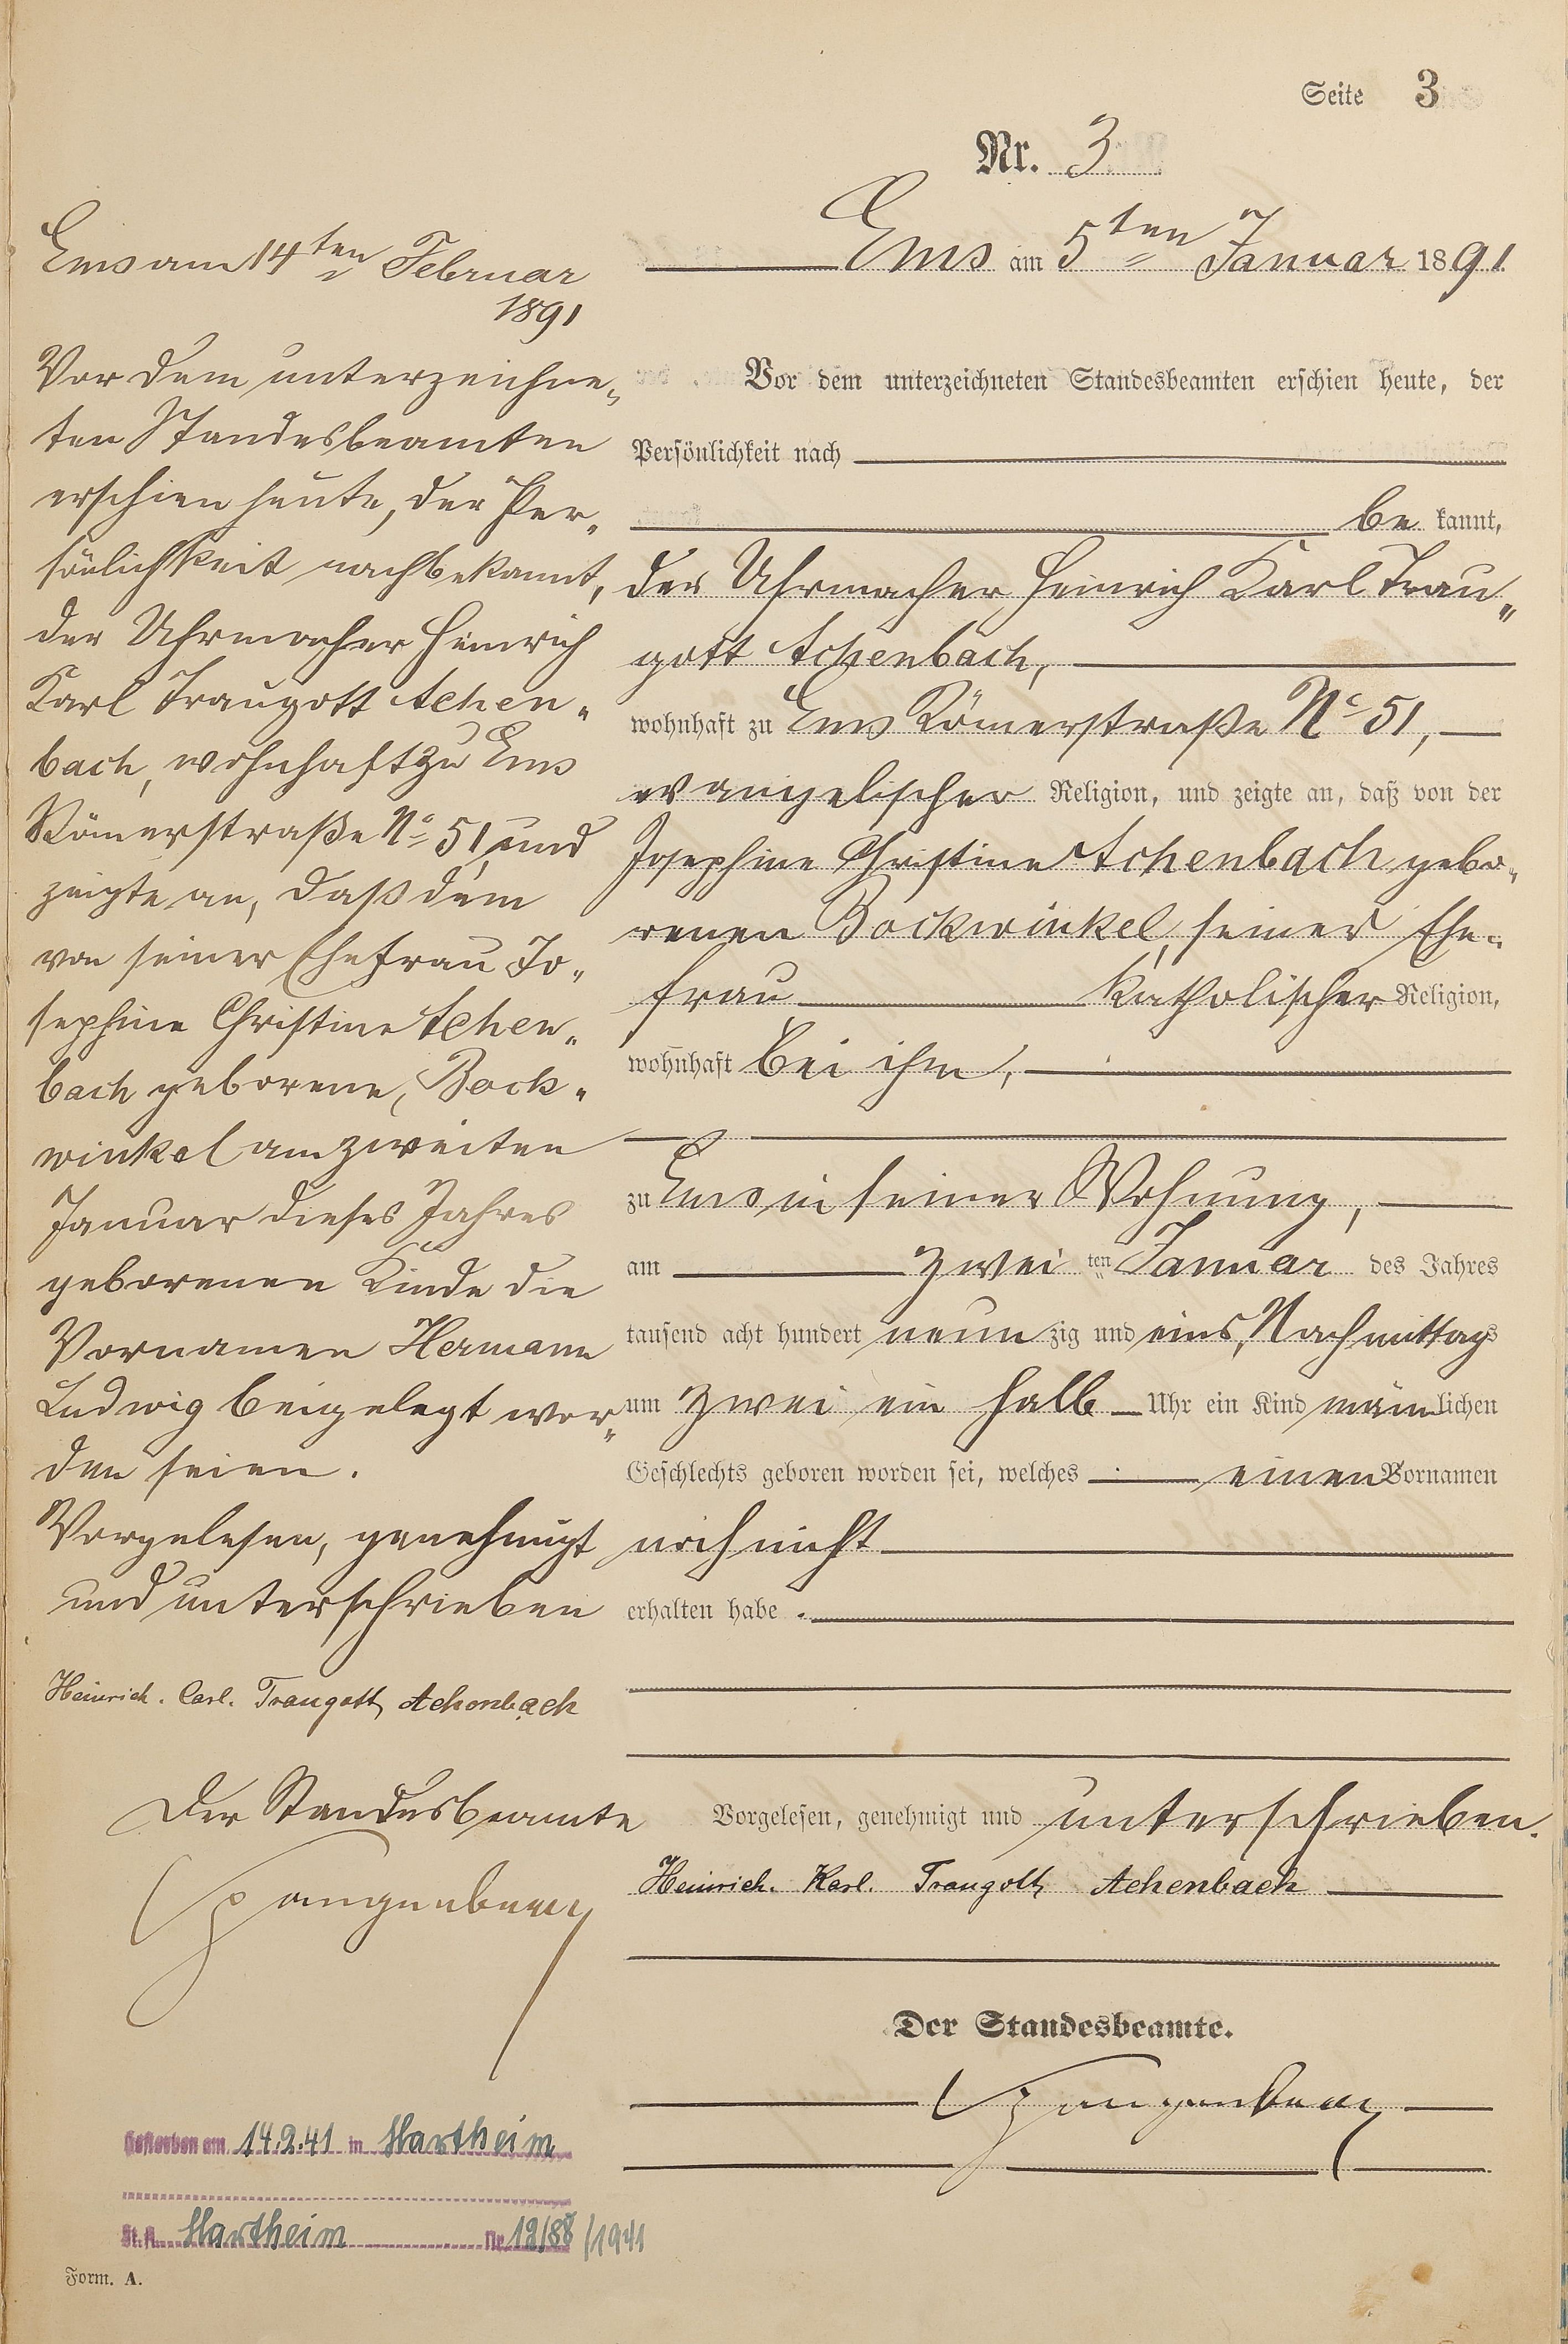 Seite 3
Nr. 3
Ems am 5ten Januar 1891
Vor dem unterzeichneten Standesbeamten erschien heute, der
Persönlichkeit nach
be kannt,
der Uhrmacher Heinrich Karl Trau„
gott Achenbach,
wohnhaft zu Ems Römerstraße No 51,
evangelischer Religion, und zeigte an, daß von der
Josephine Christine Achenbach gebo„
renen Bockwinkel, seiner Ehe„
frau katholischer Religion,
wohnhaft bei ihm,
zu Ems in seiner Wohnung,
am zwei ten Januar des Jahres
tausend acht hundert neun zig und eins, Nachmittags
um zwei ein halb Uhr ein Kind männlichen
Geschlechts geboren worden sei, welches einen Vornamen
noch nicht
erhalten habe.
Vorgelesen, genehmigt und unterschrieben.
Heinrich. Karl. Traugott Achenbach
Der Standesbeamte.
Ems am 14ten Februar
1891
Vor dem unterzeichne„
ten Standesbeamten
erschien heute, der Per„
sönlichkeit nach bekannt,
der Uhrmacher Heinrich
Karl Traugott Achen„
bach, wohnhaft zu Ems
Römerstraße No 51, und
zeigte an, daß dem
von seiner Ehefrau Jo„
sephine Christine Achen„
bach geborene, Bock„
winkel am zweiten
Januar dieses Jahres
geborenen Kinde die
Vornamen Hermann
Ludwig beigelegt wor„
den seien.
Vorgelesen, genehmigt
und unterschrieben
Heinrich. Carl. Traugott Achenbach
Der Standesbeamte
Gestorben am 14.2.41 in Hartheim
St.A. Hartheim Nr. 12/88/1941
Form. A.